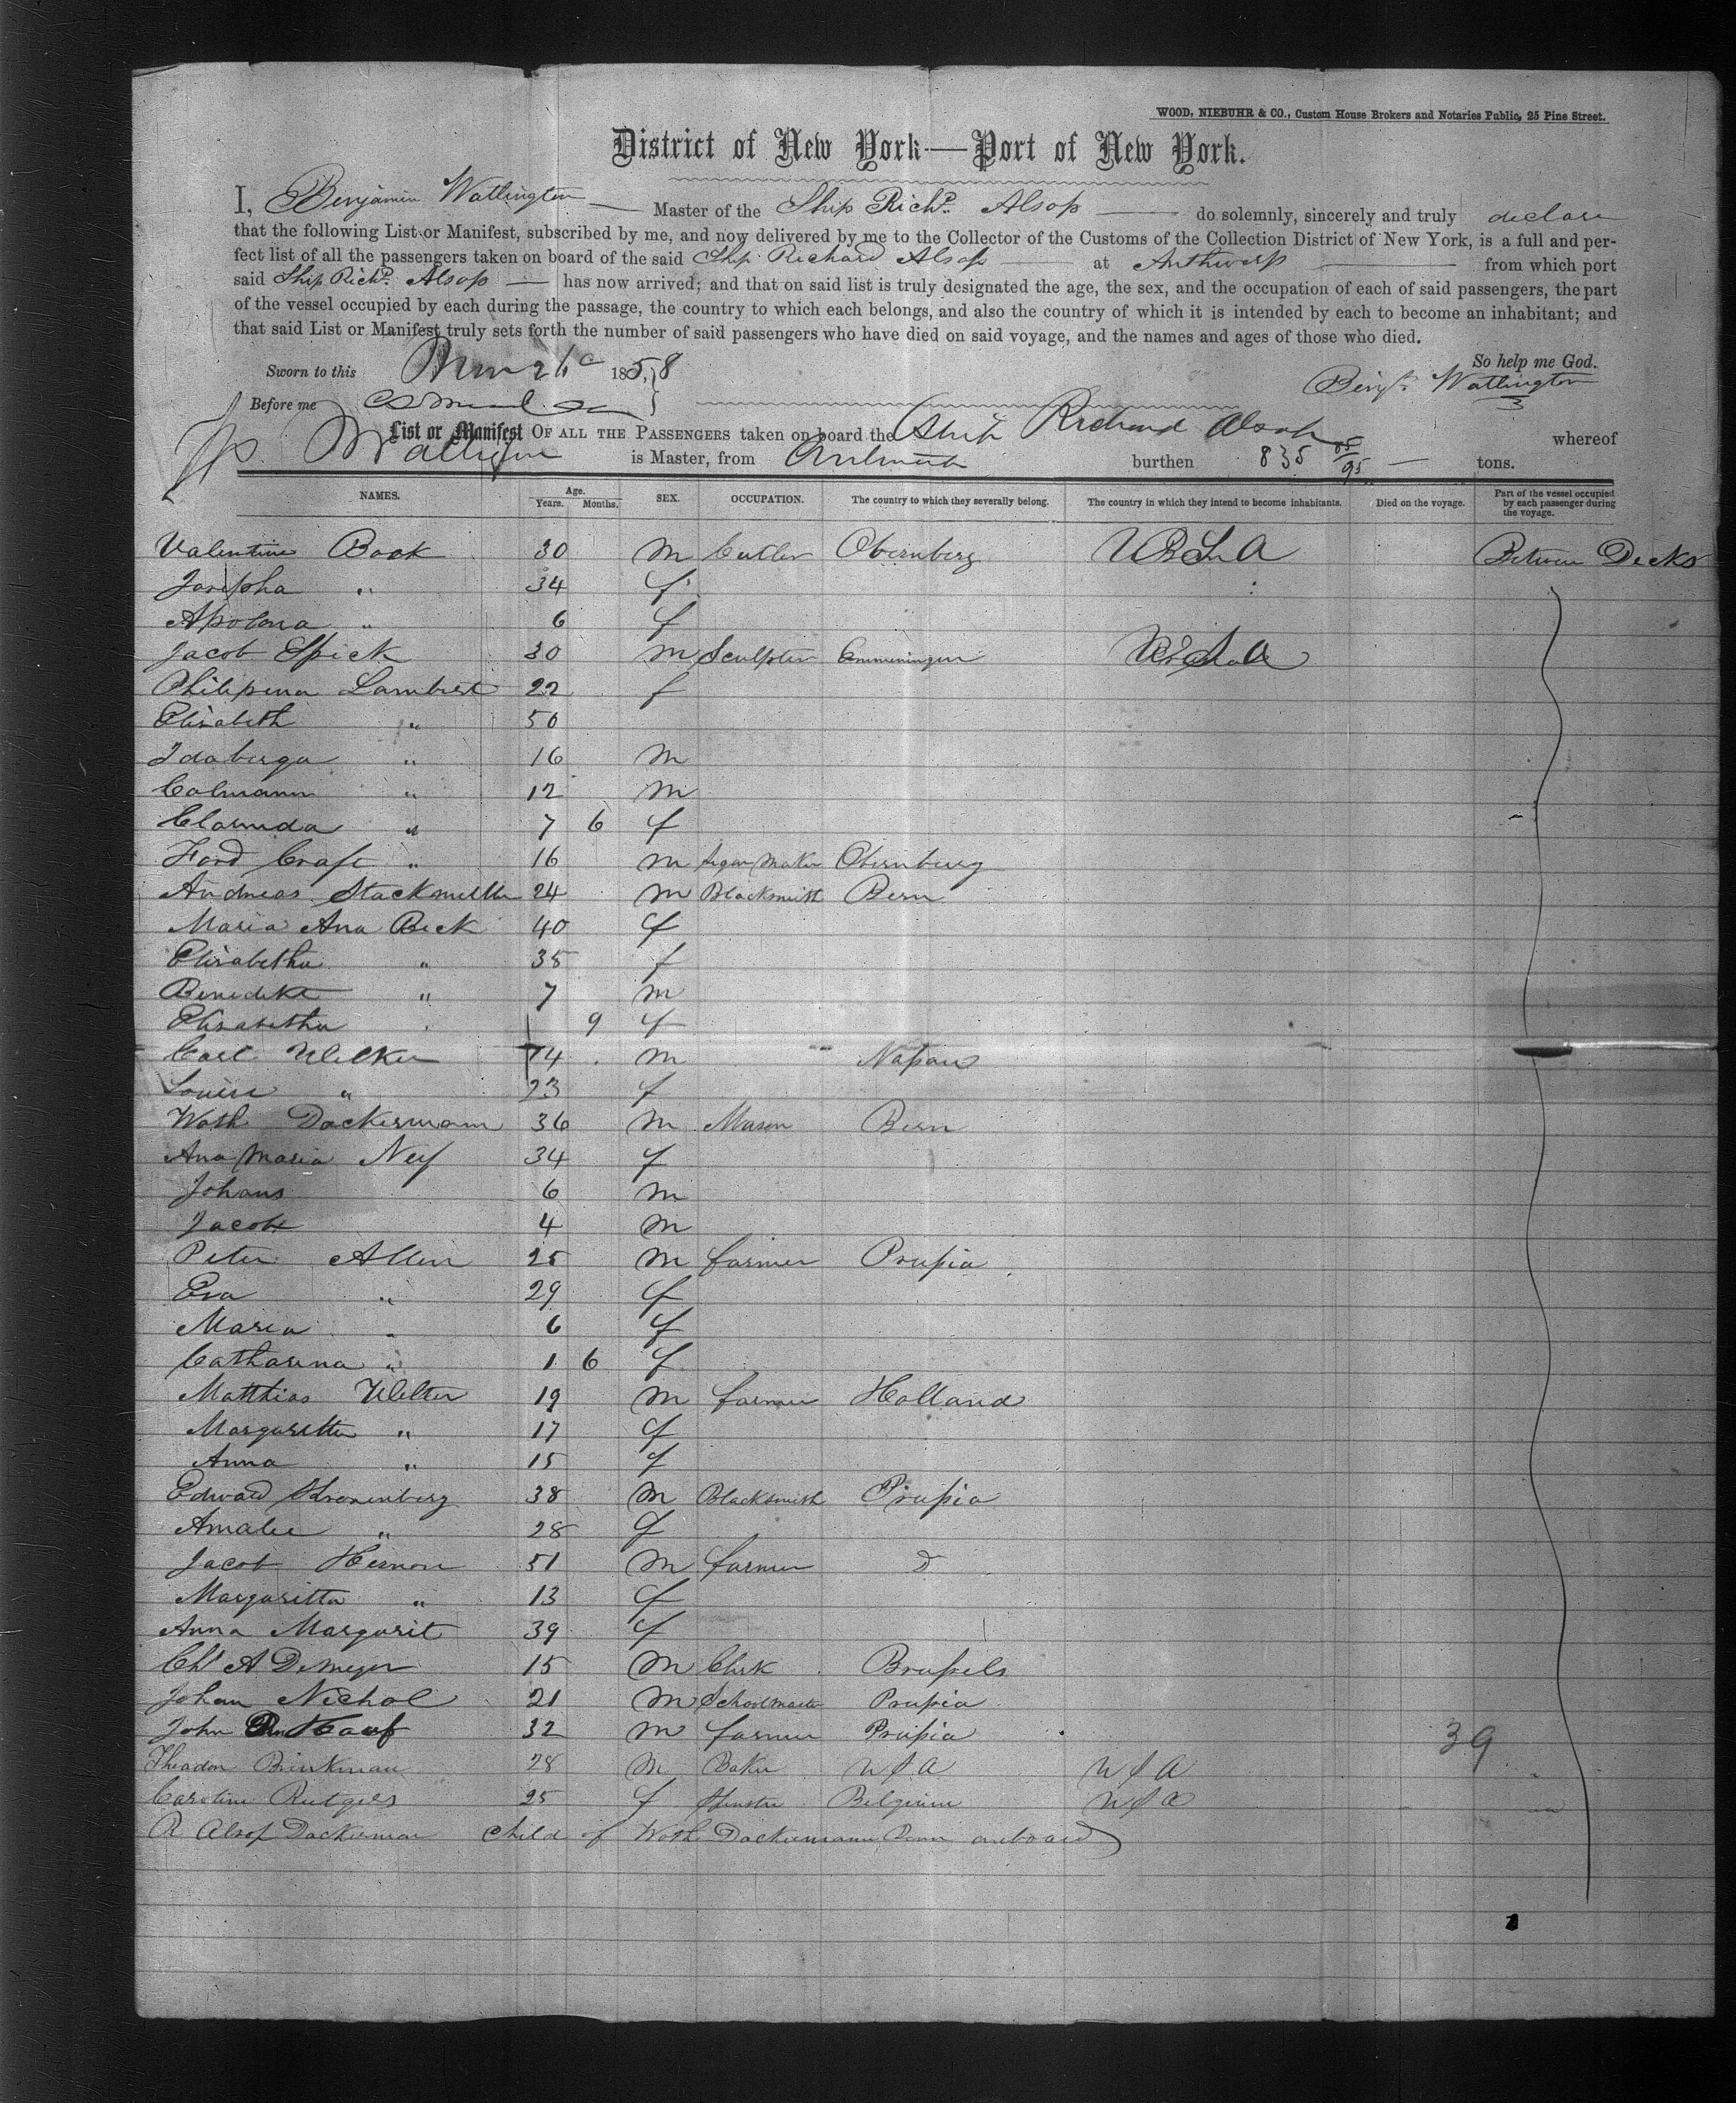 WOOD, NIEBUHR & CO., Custom House Brokers and Notaries Public, 25 Pine Street.
District of New York—Port of New York.
I, Benjamin Watlington — Master of the Ship Richd. Alsop — do solemnly, sincerely and truly declare
that the following List or Manifest, subscribed by me, and now delivered by me to the Collector of the Customs of the Collection District of New York, is a full and per-
fect list of all the passengers taken on board of the said Ship Richard Alsop — at Anthwerp — from which port
said Ship Richd. Alsop — has now arrived; and that on said list is truly designated the age, the sex, and the occupation of each of said passengers, the part
of the vessel occupied by each during the passage, the country to which each belongs, and also the country of which it is intended by each to become an inhabitant; and
that said List or Manifest truly sets forth the number of said passengers who have died on said voyage, and the names and ages of those who died.
So help me God.
Sworn to this 26 1858
Benjn. Watlington
Before me
List or Manifest OF ALL THE PASSENGERS taken on board the Ship Richard Alsop whereof
is Master, from burthen 835 /95 — tons.
NAMES. Age. Years. Months. SEX. OCCUPATION. The country to which they severally belong. The country in which they intend to become inhabitants. Died on the voyage. Part of the vessel occupied by each passenger during the voyage.
Valentine Book 30 m Cutler Obernberg U S A Between Decks
Josepha " 34 f
Apolona " 6 f
Jacob Spick 30 m Sculpter Emmeningen
Philipena Lambert 22 f
Elisabeth " 50
Idaberga " 16 m
Colmann " 12 m
Clarinda " 7 6 f
Ford Craft " 16 m Segar Maker Obernburg
Andreas Stackmeller 24 m Blacksmith Bern
Maria Ana Beck 40 f
Elisabetha " 35 f
Benedikt " 7 m
Elisabetha 9 f
Carl Welker 74 m Nassau
Louise " 23 f
Woth Dackermann 36 m Mason Bern
Ana Maria Ney 34 f
Johans 6 m
Jacob 4 m
Peter Allen 25 m farmer Prussia
Eva " 29 f
Maria " 6 f
Catharina " 1 6 f
Matthias Welter 19 m farmer Holland
Margaretta " 17 f
Anna " 15 f
Edward Kronenberg 38 m Blacksmith Prussia
Amalie " 28 f
Jacob Hernon 51 m farmer D
Margaritta " 13 f
Anna Margarit 39 f
Chs A Demeyer 15 m Clerk Brussels
Johan Nichol 21 m Schoolmaster Prussia
John 32 m farmer Prussia
39
Theador Brinkman 28 m Baker U S A U S A
Caroline Rutgers 25 f Spinster Belgium U S A
R Alsop Dackerman child of Woth Dackermann Born onboard